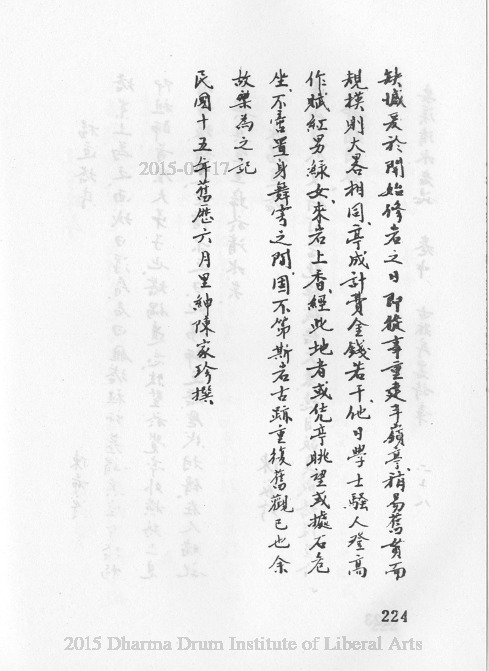 缺憾爰於開始修岩之日即從事重建半嶺亭稍易舊貫而
規模則大畧相同亭成計費金錢若干他日學士騷人登高
作賦紅男綠女來岩上香經此地者或凭亭眺望或據石危
坐不啻置身舞雩之間固不第斯岩古跡重復舊觀已也余
故樂為之記
民國十五年舊歷六月里紳陳家珍撰
224
2015 Dharma Drum Institute of Liberal Arts